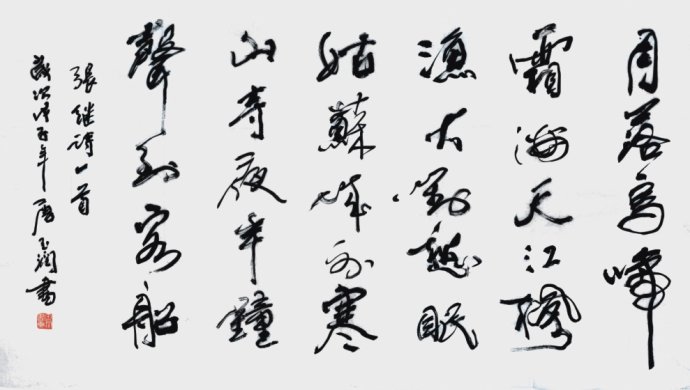 月落烏啼
霜滿天江楓
漁火對愁眠
姑蘇城外寒
山寺夜半鐘
聲到客船
張继詩一首
歲次年書